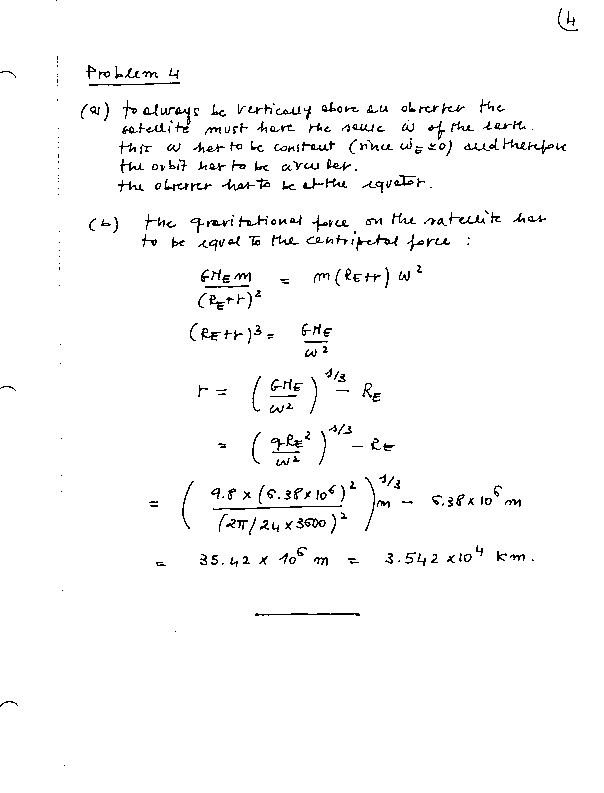 (4
Problem 4
(a) to always be vertically above an observer the
satellite must have the same ω of the earth.
this ω has to be constant (since ω̇_E ≃ 0) and therefore
the orbit has to be circular.
the observer has to be at the equator.
(b) the gravitational force on the satellite has
to be equal to the centripetal force :
GM_E m / (R_E+r)^2 = m (R_E+r) ω^2
(R_E+r)^3 = GM_E / ω^2
r = (GM_E / ω^2)^1/3 - R_E
= (gR_E^2 / ω^2)^1/3 - R_E
= (9.8 × (6.38×10^6)^2 / (2π/24×3600)^2)^1/3 m - 6.38×10^6 m
= 35.42 × 10^6 m = 3.542 ×10^4 km.